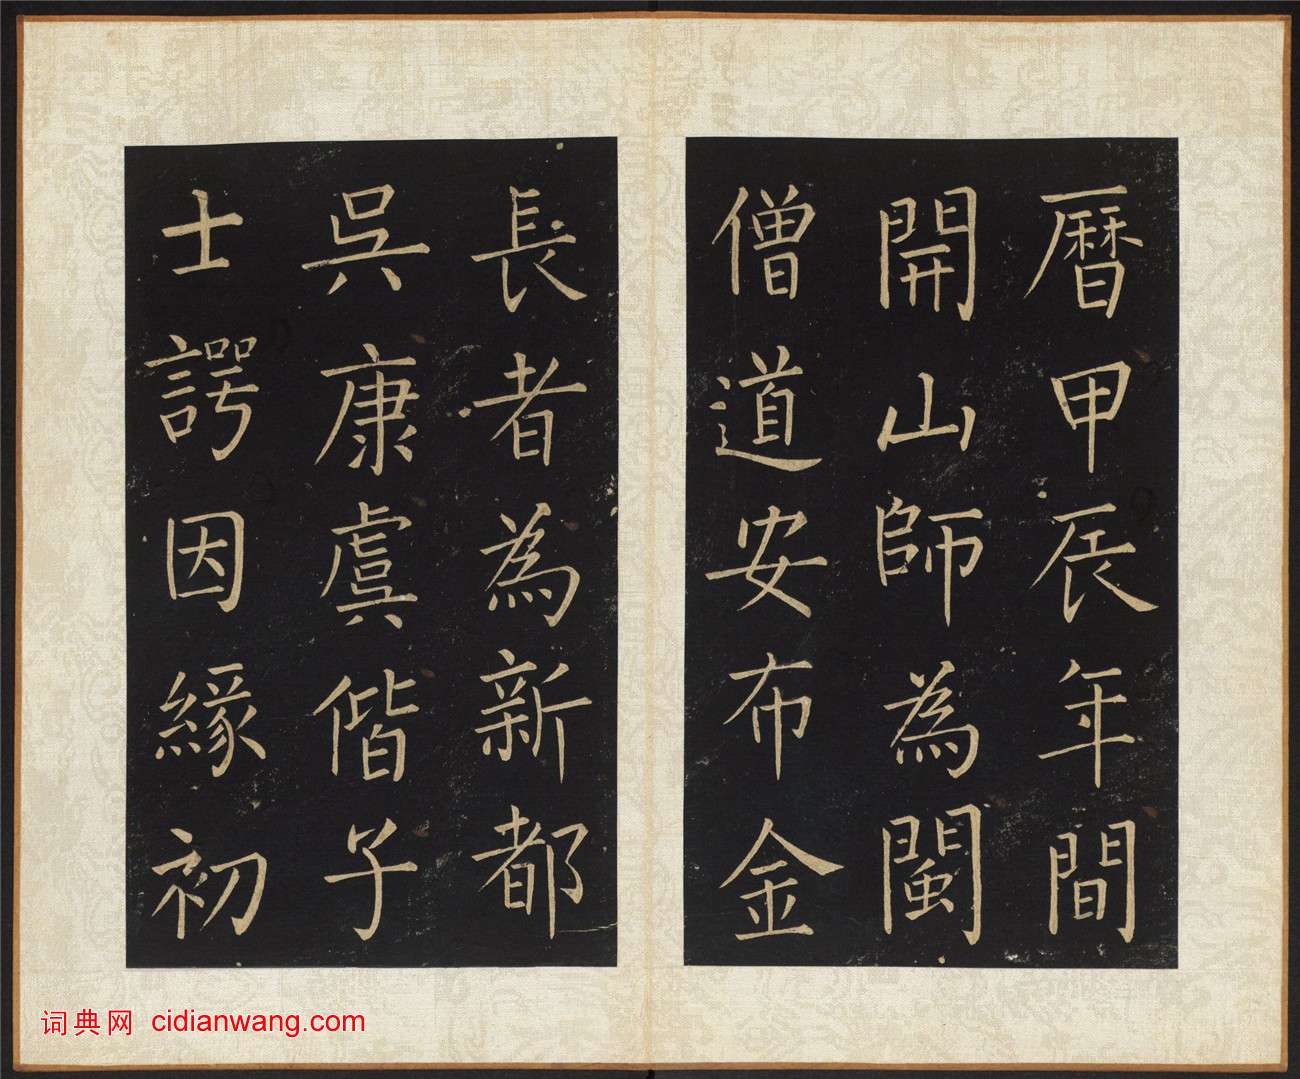 曆甲辰年間
開山師為閩
僧道安布金
長者為新都
吳康虞偕子
士諤因緣初
词典网 cidianwang.com